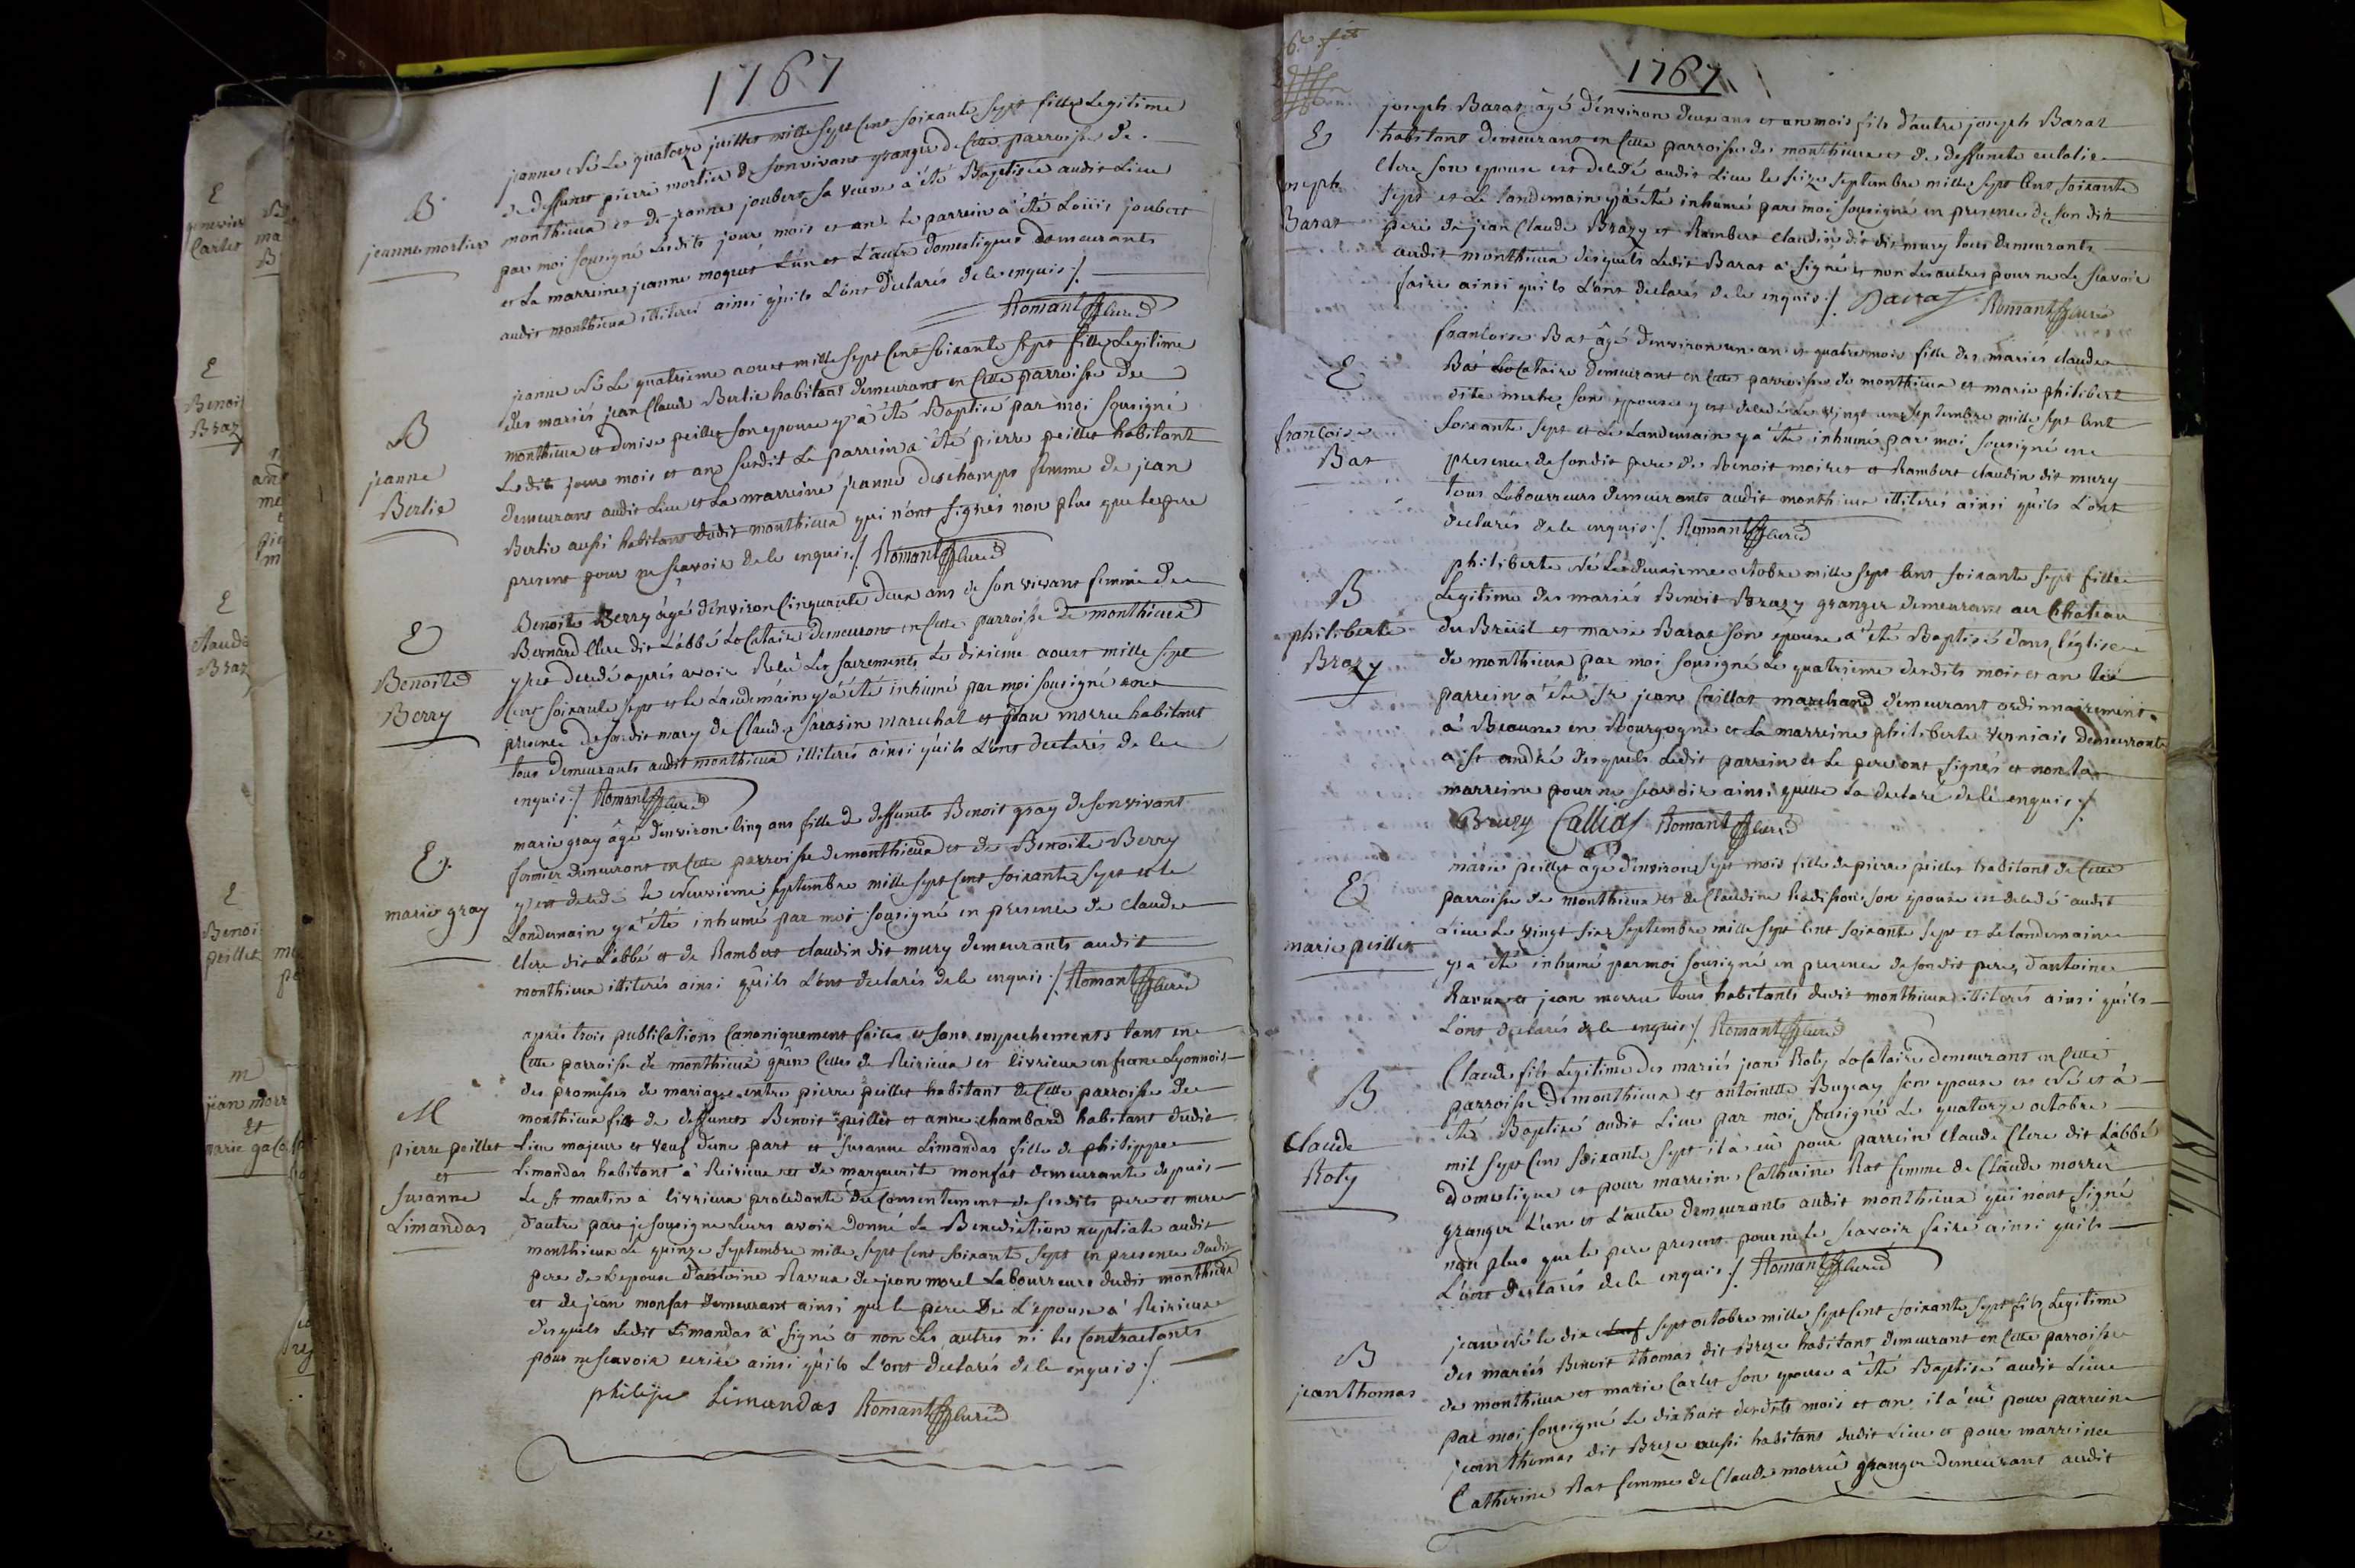 1767
B
jeanne mortier
jeanne Né Le quatorze juillet mille sept Cent soixante sept fille Legitime
de deffunct pierre mortier de son vivant granger de Cette parroisse de
monthieux et de jeanne joubert sa veuve a été Baptisée audit Lieu
par moi sousigné Lesdits jour mois et an Le parrein a été Loüis joubert
et La marreine jeanne moquet L'un et L'autre domestiques demeurants
audit monthieux illiterés ainsi qu'ils L'ont declarés de le enquis ./.
Romant Curé
B
jeanne
Berlie
jeanne Né Le quatrieme aoust mille sept Cent soixante sept fille Legitime
des mariés jean Claude Berlie habitant demeurant en Cette parroisse de
monthieux et denise peillet son epouse y a été Baptisé par moi sousigné
Lesdits jour mois et an susdit Le parrein a été pierre peillet habitant
demeurant audit Lieu et La marreine jeanne deschamps femme de jean
Berlie aussi habitant dudit monthieux qui n'ont signés non plus que le pere
present pour ne sçavoir de le enquis ./. Romant Curé
E
Benoite
Berry
Benoite Berry âgé d'environ Cinquante deux ans de son vivant femme de
Bernard Clere dit L'abbé Locataire demeurant en Cette parroisse de monthieux
y est decedé aprés avoir Reçû Les sacrements Le dixieme aoust mille sept
Cent soixante sept et le Landemain y a été inhumé par moi sousigné en
presence de sondit mary de Claude sarasin marechal et jean morru habitant
tous demeurants audit monthieux illiterés ainsi qu'ils L'ont declarés de le
enquis ./. Romant Curé
E
marie gray
marie gray âgé d'environ Cinq ans fille de deffuncts Benoit gray de son vivant
fermier demeurant en Cette parroisse de monthieux et de Benoite Berry
y est decedé le neuvieme septembre mille sept Cent soixante sept et le
Landemain y a été inhumé par moi sousigné en presence de claude
Clere dit L'abbé et de Rambert claudin dit mury demeurants audit
monthieux illiterés ainsi qu'ils L'ont declarés de le enquis ./. Romant Curé
M
pierre peillet
et
susanne
Limandas
aprés trois publications Canoniquement faites et sans empechements tant en
Cette parroisse de monthieux qu'en Celles de Reirieux et livrieux en franc Lyonnois
des promesses de mariage entre pierre peillet habitant de Cette parroisse de
monthieux fils de deffuncts Benoit peillet et anne chambard habitant dudit
Lieu majeur et veuf d'une part et susanne Limandas fille de philippe
Limandas habitant à Reirieux et de marguerite monfat demeurante depuis
Le st martin a livrieux procedante du Consentement de sesdits pere et mere
d'autre part je sousigne Leurs avoir donné La Benediction nuptiale audit
monthieux Le quinze septembre mille sept Cent soixante sept en presence dudit
pere de L'epouse d'antoine Ravux de jean morel Laboureurs dudit monthieux
et de jean monfat demeurant ainsi que le pere De L'epouse à Reirieux
desquels Ledit Limandas à signé et non Les autres ni les Contractants
pour ne sçavoir ecrire ainsi qu'ils L'ont declarés de le enquis ./.
philipe Limandas Romant Curé
1767
E
joseph
Barat
joseph Barat âgé d'environ deux ans et un mois fils d'autre joseph Barat
habitant demeurant en Cette parroisse de monthieux et de deffuncte eulalie
Clere son epouse est decedé audit Lieu le seize septembre mille sept Cent soixante
sept et Le landemain y a été inhumé par moi sousigné en presence de son dit
pere de jean Claude Brazy et Rambert claudin dit mury tous demeurants
audit monthieux desquels Ledit Barat a signé et non Les autres pour ne Le sçavoir
faire ainsi qu'ils L'ont declarés de le enquis ./. Barat Romant Curé
E
françoise
Bas
francoise Bas âgé d'environ un an et quatre mois fille des mariés claude
Bas Locataire demeurant en Cette parroisse de monthieux et marie philibert
dite son epouse y est decedé Le vingt un septembre mille sept Cent
soixante sept et Le Landemain y a été inhumé par moi sousigné en
presence de sondit pere de Benoit moiret et Rambert claudin dit mury
tous Laboureurs demeurants audit monthieux illiterés ainsi qu'ils L'ont
declarés de le enquis ./. Romant Curé
B
philiberte
Brazy
philiberte Né Le deuxieme octobre mille sept Cent soixante sept fille
Legitime des mariés Benoit Brazy granger demeurant au Chateau
du Breüil et marie Barat son epouse a été Baptisé dans l'église
de monthieux par moi sousigné Le quatrieme desdits mois et an Le
parrein a été sr jean Caillat marchand demeurant ordinnairement
à Beaune en Bourgogne et La marreine philiberte Venniais demeurante
a st andré desquels Ledit parrein et Le pere ont signés et non la
marreine pour ne sçavoir ainsi qu'elle La declaré de le enquis ./.
Brazy Calliat Romant Curé
E
marie peillet
marie peillet âgé d'environ sept mois fille de pierre peillet habitant de Cette
parroisse de monthieux et de Claudine Radisson son epouse est decedé audit
Lieu Le vingt six septembre mille sept Cent soixante sept et Le landemain
y a été inhumé par moi sousigné en presence de sondit pere, d'antoine
Ravux et jean morru tous habitants dudit monthieux illiterés ainsi qu'ils
L'ont declarés de le enquis ./. Romant Curé
B
Claude
Roly
Claude fils Legitime des mariés jean Roly Locataire demeurant en Cette
parroisse de monthieux et antoinette Bugeay son epouse est Né et à
été Baptisé audit Lieu par moi sousigné Le quatorze octobre
mil sept Cens soixante sept il a eû pour parrein Claude Clere dit L'abbé
Domestique et pour marreine Catherine Rat femme de Claude morru
granger L'un et L'autre demeurants audit monthieux qui n'ont signé
non plus que le pere present pour ne le sçavoir faire ainsi qu'ils
L'ont declarés de le enquis ./. Romant Curé
B
jean thomas
jean Né le dix sept octobre mille sept Cent soixante sept fils Legitime
des mariés Benoit thomas dit Breze habitant demeurant en Cette parroisse
de monthieux et marie Carlet son epouse a été Baptisé audit Lieu
par moi sousigné Le dixhuit desdits mois et an il a eû pour parrein
jean thomas dit Breze aussi habitant dudit Lieu et pour marreine
Catherine Rat femme de Claude morru granger demeurant audit